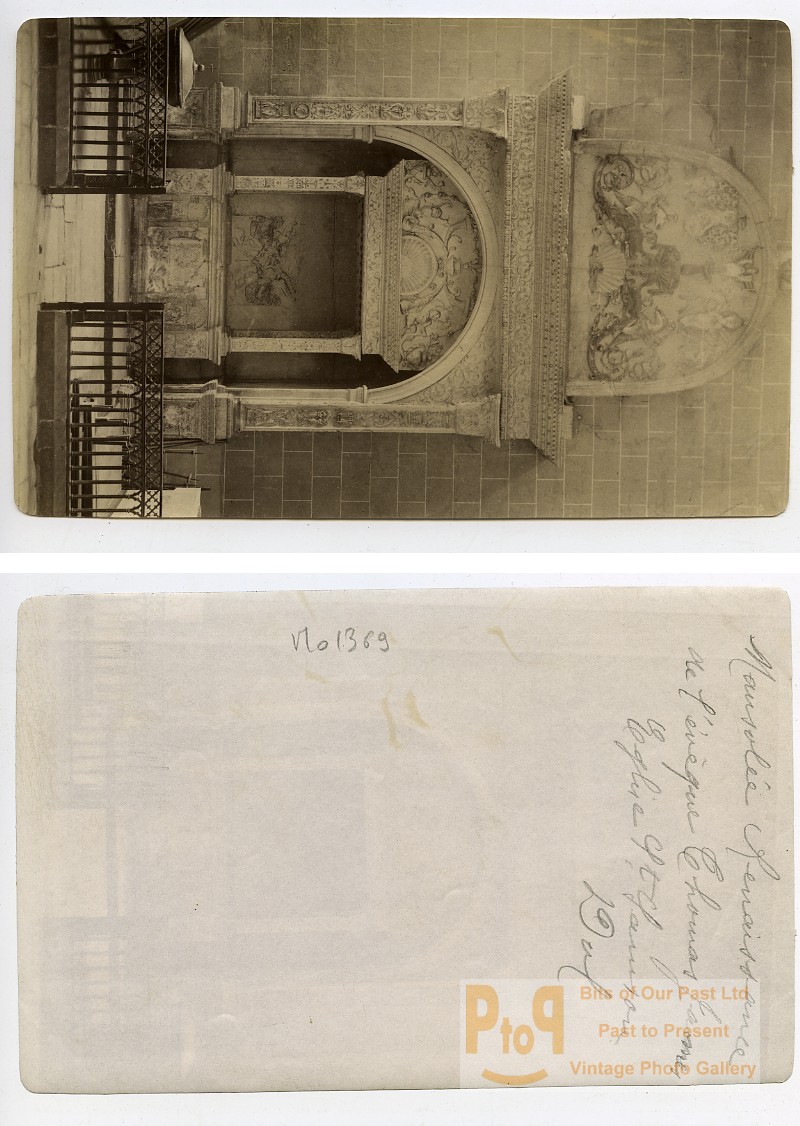 Vlo1369
Mausolée Renaissance
de l'évêque Thomas James
Eglise St Samson
Dol
PtoP
Bits of Our Past Ltd
Past to Present
Vintage Photo Gallery